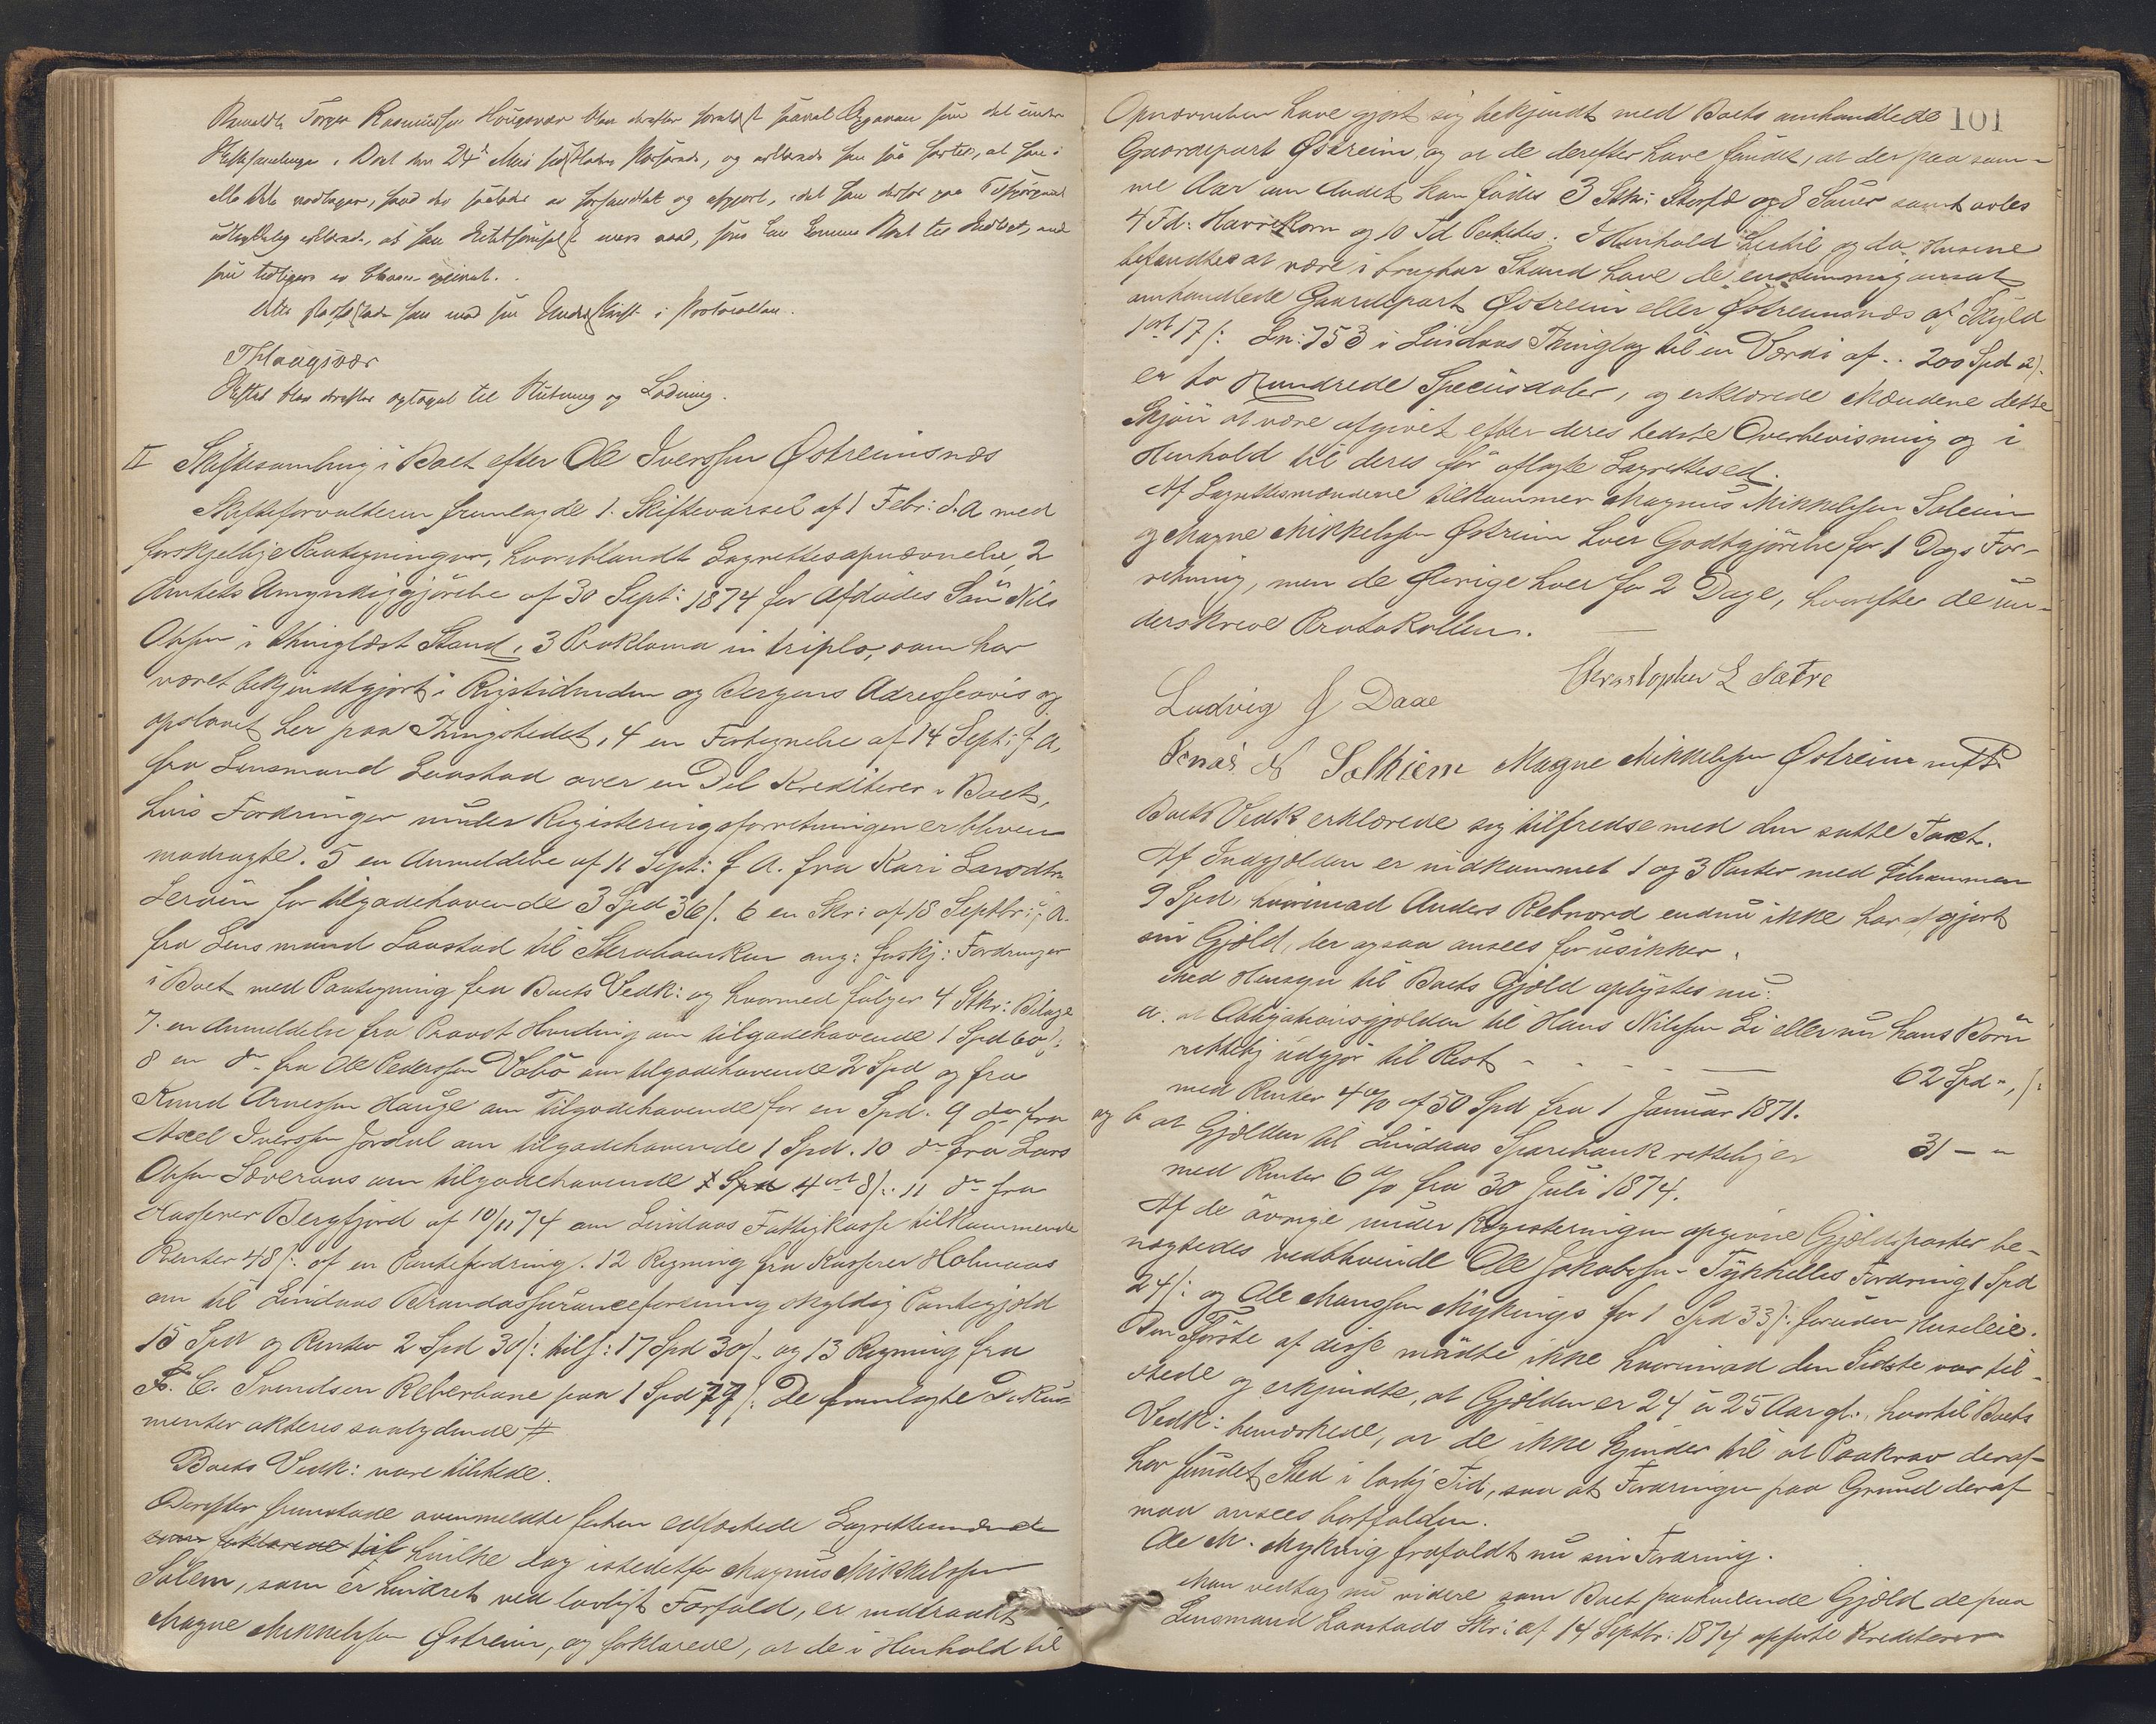 Rasmussen Hougsvær blev derefter forelæst saavel Opgaven som det under
Skiftesamlingen i Boet den 24de Mai og erklærede han
at han
som tidligere er bleven opgivet.
Dette han med sin Underskrift i Protocollen.
T Haugsvær
Skiftet blev derefter optaget til Slutning og Lodning.
II Skiftesamling i Boet efter Ole Iverssen Østreimsnæs
Skifteforvalteren fremlagde 1. Skiftevarsel af 1 Febr: d. A med
forskjellige Paategninger, hvoriblandt Lagrettesopnævnelse, 2
Amtets Umyndiggjørelse af 30 Sept: 1874 for Afdødes Søn Nils
Olssen i thinglæst Stand, 3 Proklama in triplo, som har
været bekjendtgjort i Rigstidenden og Bergens Adresseavis og
opslaaet her paa Thingstedet, 4 en Fortegnelse af 14 Sept: f A,
fra Lensmand Laastad over en Del Kreditorer i Boet,
hvis Fordringer under Registeringsforretningen er bleven
modsagte. 5 en Anmeldelse af 11 Sept: f A. fra Kari Larsdtr
Lervin for tilgodehavende 3 Spd 36 /. 6 en Skr: af 18 Septbr: f. A.
fra Lensmand Laastad til Skrabanken ang: forskj: Fordringer
i Boet med Paategning fra Boets Vedk: og hvormed følger 4 Stkr: Bilage
7. en Anmeldelse fra Provst Hvnding om tilgodehavende 1 Spd 60 /:
8 en do fra Ole Pederssen Vabø om tilgodehavende 2 Spd og fra
Knud Arnessen Hauge om Tilgodehavende for en Spd. 9 do fra
Axel Iverssen Jordal om tilgodehavende 1 Spd. 10 do fra Lars
Olssen Sæveraas om tilgodehavende 4 ort 8 /: 11 do fra
Kasserer Bergfjord af 10/11 74 om Lindaas Fattigkasse tilkommende
Renter 48 /: af en Pantefordring. 12 Regning fra Kasserer Holmaas
om til Lindaas Brandassuranceforening skyldig Pantegjæld
15 Spd og Renter 2 Spd 30 /: tils: 17 Spd 30 / og 13 Regning fra
F. C. Svendsen Reberbane paa 1 Spd 77 /: De fremlagte Doku-
menter akteres saalydende #
Boets Vedk: vare tilstede.
Derefter fremstode ovenmeldte forhen edfæstede Lagrettemænd
hvilke dog istedetfor Magnus Mikkelssen
Solem, som er hindret ved lovligt Forfald, er indtraadt
Magne Mikkelssen Østreim, og forklarede, at de i Henhold til
101
Opnævnelsen have gjort sig bekjendt med Boets omhandlede
Gaardepart Østreim, og at de derefter have fundet, at der paa sam-
me Aar om Andet kan fødes 3 Stkr: Storfæ og 8 Sauer samt avles
4 Td: Havrekorn og 10 Td Potetes. I Henhold hertil og da Husene
befandtes at være i brugbar Stand have de enstemmig ansat
omhandlede Gaardepart Østreim eller Østreimsnæs af Skyld
1 ort 17 /: Ln: 753 i Lindaas Thinglag til en Værdi af .. 200 Spd a):
er to Hundrede Speciesdaler, og erklærede Mændene dette
Skjøn at være afgivet efter deres bedste Overbevisning og i
Henhold til deres før aflagte Lagrettesed.
Af Lagrettesmændene tilkommer Magnus Mikkelssen Soleim
og Magne Mikkelssen Østreim hver Godtgjørelse for 1 Dags For-
retning, men de Øvrige hver for 2 Dage, hvorefter de un-
derskreve Protokollen.
Christopher L Sætre
Ludvig J Daae
Jonas N Solhiem Magne Mikkelssen Østreim m f P
Boets Vedk erklærede sig tilfredse med den satte Taxt.
Af Indgjælden er indkommet 1 og 3 Poster med tilsammen
9 Spd, hvorimod Anders Rebnord endnu ikke har afgjort
sin Gjæld, der ogsaa ansees for usikker.
Med Hensyn til Boets Gjæld oplystes nu:
a. at Obligationsgjælden til Hans Nilssen Ei eller nu hans Børn
rettelig udgjør til Rest - - - - 62 Spd " /:
med Renter 4 % af 50 Spd fra 1 Januar 1871.
og b at Gjælden til Lindaas Sparebank rettelig er 31 - "
med Renter 6 % fra 30 Juli 1874.
Af de øvrige under Registeringen opgivne Gjældsposter be-
nægtedes vedblivende Ole Jakobssen Tykhelles Fordring 1 Spd
24 /: og Ole Monssen Mykings for 1 Spd 33 /: foruden Husleie.
Den Første af disse mødte ikke hvorimod den Sidste var til-
stede og erkjendte, at Gjælden er 24 à 25 Aar gl:, hvortil Boets
Vedk: bemærkede, at de ikke kjender til at Paakrav deraf
har fundet Sted i lovlig Tid, saa at Fordringen paa Grund deraf
maa ansees bortfalden.
Ole M. Myking frafaldt nu sin Fordring.
Man vedtog nu videre som Boet paahvilende Gjæld de paa
Lensmand Laastads Skr: af 14 Septbr: 1874 opførte Kreditorer